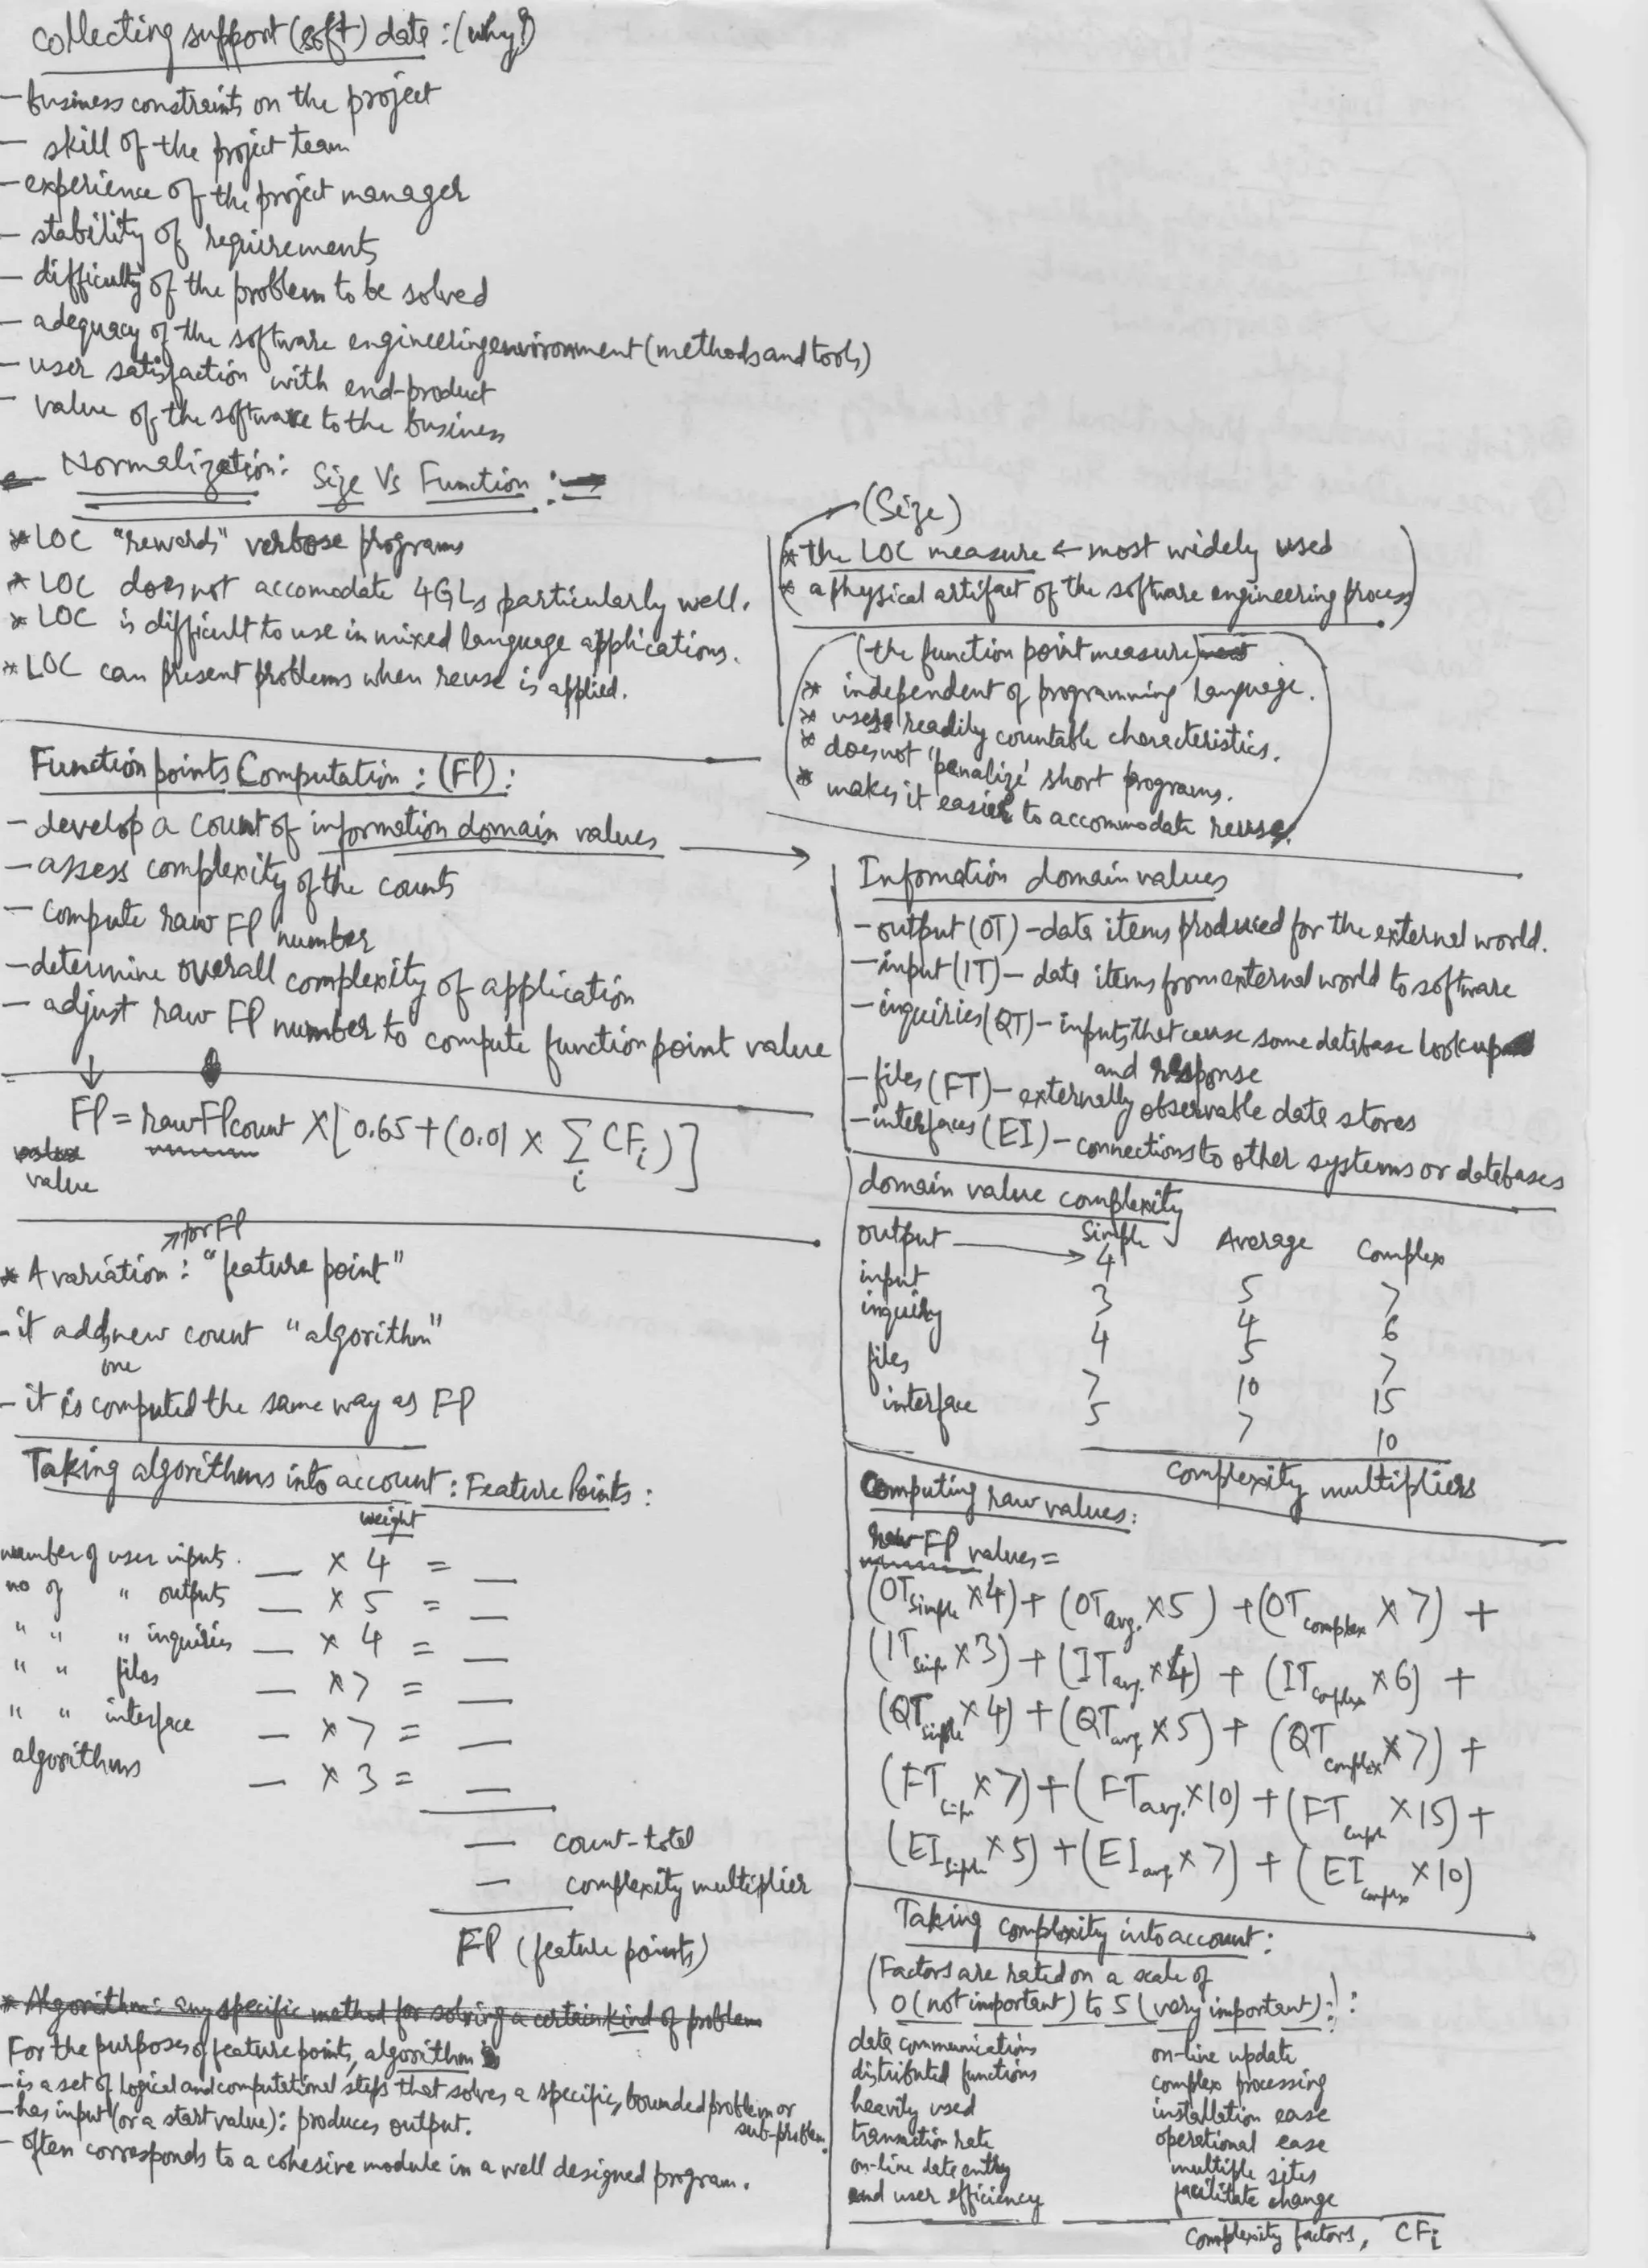 collecting support (soft) data : (why?)
- business constraints on the project
- skill of the project team
- experience of the project manager
- stability of requirements
- difficulty of the problem to be solved
- adequacy of the software engineering environment (methods and tools)
- user satisfaction with end-product
- value of the software to the business
Normalization: Size Vs Function :
* LOC "rewards" verbose programs
* LOC does not accomodate 4GLs particularly well.
* LOC is difficult to use in mixed language applications.
* LOC can present problems when reuse is applied.
(Size)
* the LOC measure ← most widely used
* a physical artifact of the software engineering process
(the function point measure)
* independent of programming language.
* uses readily countable characteristics.
* does not "penalize" short programs.
* makes it easier to accommodate reuse.
Function points Computation : (FP) :
- develop a count of information domain values →
- assess complexity of the counts
- compute raw FP number
- determine overall complexity of application
- adjust raw FP number to compute function point value
FP = raw FP count × [0.65 + (0.01 × Σ CFi)]
i
value
↗ for FP
* A variation : "feature point"
- it adds new count "algorithm"
one
- it is computed the same way as FP
Taking algorithms into account : Feature Points :
weight
number of user inputs. — × 4 = —
no of " outputs — × 5 = —
" " " inquiries — × 4 = —
" " files — × 7 = —
" " interface — × 7 = —
algorithms — × 3 = —
— count-total
— complexity multiplier
FP (feature points)
* Algorithm: any specific method for solving a certain kind of problem
For the purposes of feature points, algorithm
- is a set of logical and computational steps that solves a specific, bounded problem or
sub-problem.
- has input (or a start value): produces output.
- often corresponds to a cohesive module in a well designed program.
Information domain values
- output (OT) - data items produced for the external world.
- input (IT) - data items from external world to software
- inquiries (QT) - inputs that cause some database lookup
and response
- files (FT) - externally observable data stores
- interfaces (EI) - connections to other systems or databases
domain value complexity
Simple Average Complex
output → 4 5 7
input 3 4 6
inquiry 4 5 7
files 7 10 15
interface 5 7 10
complexity multipliers
Computing raw values:
raw FP values =
(OTsimple × 4) + (OTavg. × 5) + (OTcomplex × 7) +
(ITsimp × 3) + (ITavg. × 4) + (ITcomplex × 6) +
(QTsimple × 4) + (QTavg. × 5) + (QTcomplex × 7) +
(FTsimp × 7) + (FTavg. × 10) + (FTcomplx × 15) +
(EIsimple × 5) + (EIavg. × 7) + (EIcomplex × 10)
Taking complexity into account :
(Factors are rated on a scale of
0 (not important) to 5 (very important) :) :
data communications on-line update
distributed functions complex processing
heavily used installation ease
transaction rate operational ease
on-line data entry multiple sites
end user efficiency facilitate change
Complexity factors, CFi